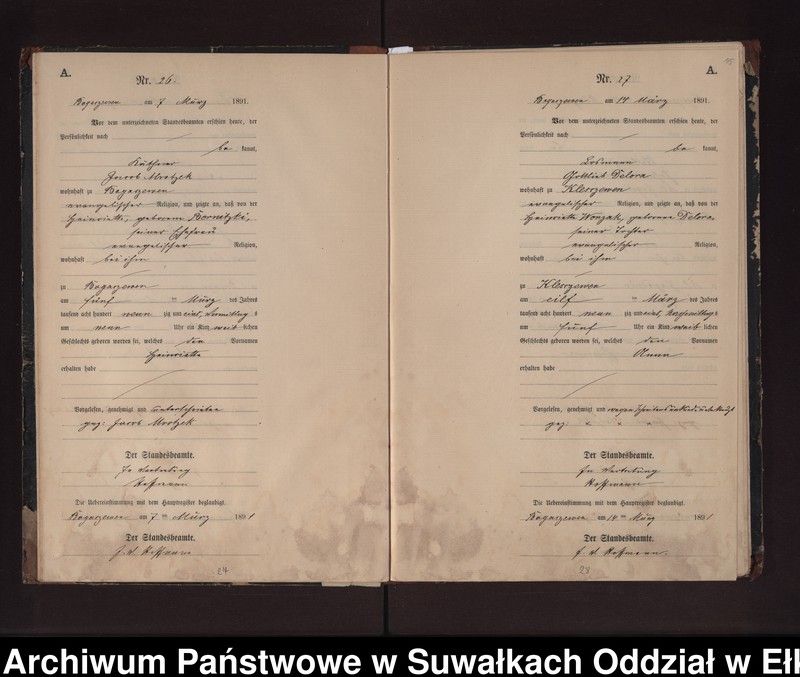 A.
Nr. 26.
am 7 März 1891.
Vor dem unterzeichneten Standesbeamten erschien heute, der
Persönlichkeit nach
be kannt,
Käthner
Jacob Mrotzek
wohnhaft zu
evangelischer Religion, und zeigte an, daß von der
Heinriette, geborenen
seiner Ehefrau
evangelischer Religion,
wohnhaft bei ihm
zu
am fünf ten März des Jahres
tausend acht hundert neun zig und eins, Vormittag s
um neun Uhr ein Kind weib lichen
Geschlechts geboren worden sei, welches den Vornamen
Heinriette
erhalten habe
Vorgelesen, genehmigt und unterschrieben
gez: Jacob Mrotzek
Der Standesbeamte.
In Vertretung
Hoffmann
Die Uebereinstimmung mit dem Hauptregister beglaubigt.
am 7 ten März 1891
Der Standesbeamte.
I. V. Hoffmann
24
15
A.
Nr. 27
am 14 März 1891.
Vor dem unterzeichneten Standesbeamten erschien heute, der
Persönlichkeit nach
be kannt,
Losmann
Gottlieb Delora
wohnhaft zu
evangelischer Religion, und zeigte an, daß von der
Heinriette geborene Delora,
seiner Tochter
evangelischer Religion,
wohnhaft bei ihm
zu
am eilf ten März des Jahres
tausend acht hundert neun zig und eins, Nachmittag s
um fünf Uhr ein Kind weib lichen
Geschlechts geboren worden sei, welches den Vornamen
Anna
erhalten habe
Vorgelesen, genehmigt und wegen Schreibensunkunde unterkreuzt
gez:
Der Standesbeamte.
In Vertretung
Hoffmann
Die Uebereinstimmung mit dem Hauptregister beglaubigt.
am 14 ten März 1891
Der Standesbeamte.
I. V. Hoffmann.
Archiwum Państwowe w Suwałkach Oddział w Ełk